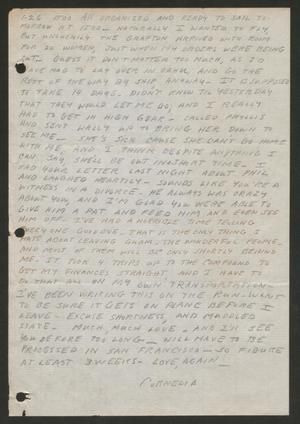 1-26 1700 All organized and ready to sail to-
morrow at 1500 - Naturally I wanted to fly
but unluckily the Grafton arrived with room
for 20 women, just when my orders were being
cut. Guess it don't matter too much, as I'd
have had to lay over in Oahu, and go the
rest of the way by ship anyway. It is supposed
to take 14 days. Didn't know til yesterday
that they would let me go, and I really
had to get in high gear - called Phyllis
and sent Wally up to bring her down to
see me. She's sick cause she can't go home
with me, and I think, despite anything I
can say, she'll be out in short time - I
had your letter last night about Phil
and laughed heartily - sounds like you're a
witness in a divorce. He always was crazy
about you, and I'm glad you were able to
give him a pat and feed him, and even see
him off. I've had a horrible time telling
everyone goodbye. That is the only thing I
hate about leaving Guam. The wonderful people.
And most of them will be only shortly behind
me. It took 4 trips up to the compound to
get my finances straight and I have to
do that all on my own transportation -
I've been writing this on the run - want
to be sure it gets on plane before I
leave - Excuse shortness, and muddled
state - Much, much love - and I'll see
you before too long - will have to be
processed in San Francisco - so figure
at least 3 weeks - Love, again -
Cornelia